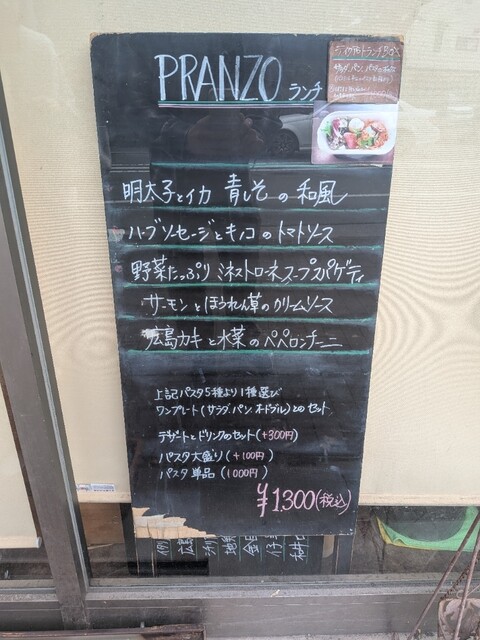 PRANZO ランチ
明太子とイカ 青しその和風
ハーブソセージとキノコのトマトソース
野菜たっぷりミネストローネスープスパゲティ
サーモンとほうれん草のクリームソース
広島カキと水菜のペペロンチーニ
上記パスタ5種より1種選び
ワンプレート(サラダ、パン、オードブル)とのセット
デザートとドリンクのセット(+300円)
パスタ大盛り(+100円)
パスタ単品(1000円)
¥1300(税込)